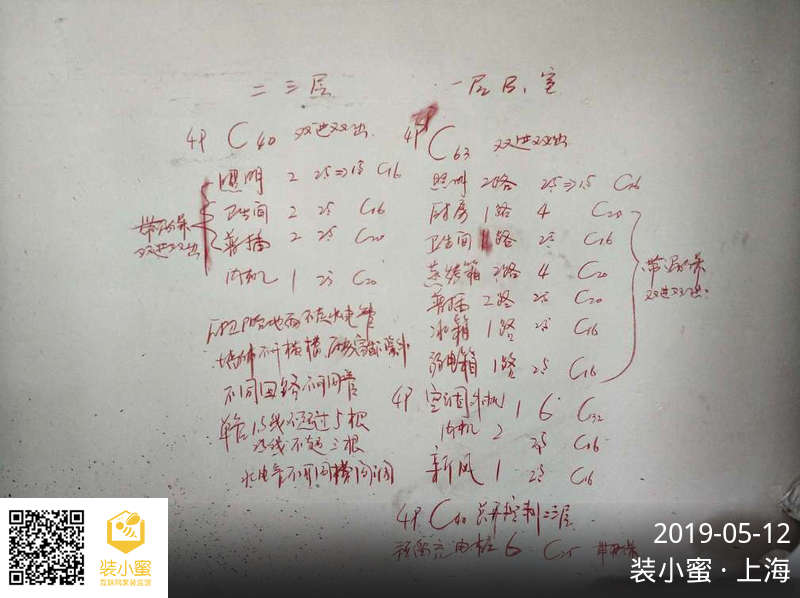 二 三层
4P C40 双进双出
照明 2 2.5=>1.5 C16
卫生间 2 2.5 C16
普插 2 2.5 C20
内机 1 2.5 C20
带漏保
双进双出
厨卫阳台地面不走水电管
墙体不开横槽,
不同回路不同管
单管1.5线不超过5根
2.5线不超三根
一层 B1室
4P C63 双进双出
照明 2路 2.5=>1.5 C16
厨房 1路 4 C20
卫生间 1路 2.5 C16
蒸烤箱 2路 4 C20
普插 2路 2.5 C20
冰箱 1路 2.5 C16
弱电箱 1路 2.5 C16
带漏保
双进双出
4P 空调外机 1 6 C32
内机 2 2.5 C16
新风 1 2.5 C16
4P C40 总开控制二三层
预留充电桩 6 C25 带漏保
装小蜜
互联网家装监理
2019-05-12
装小蜜·上海